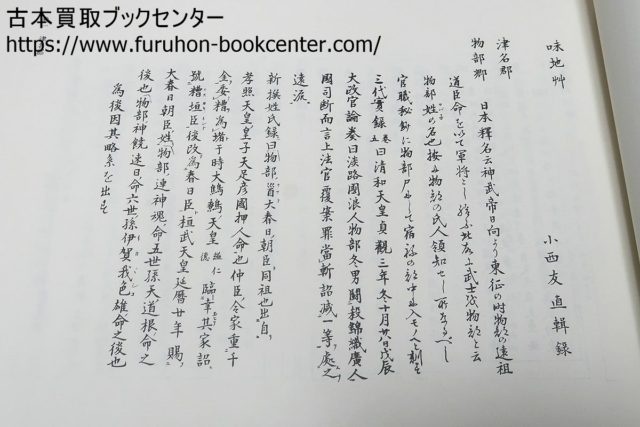 古本買取ブックセンター
https://www.furuhon-bookcenter.com/
味地艸
小西友直輯録
津名郡
物部郷 日本釋名云神武帝日向より東征の時物部の遠祖
道臣命を以て軍将とし給ふ此故に武士を物部と云
物部姓の名也按に物部の氏人領知せし所なるべし
官職秘鈔に物部戸
三代實録巻五曰清和天皇貞觀三年冬十月廿八日戊辰
大政官論奏曰淡路國浪人物部冬男鬪殺錦織廣人
國司断而言上法官覆案罪當斬詔減一等處之
遠流
新撰姓氏録曰物部首大春日朝臣同祖也出自
孝照天皇皇子天足彦國押人命也仲臣令家重千
金委糟為堵于時大鷦鷯天皇謚仁徳臨幸其家詔
號糟垣臣後改為春日臣桓武天皇延暦廿年賜
大春日朝臣姓物部連神魂命五世孫天道根命之
後也物部神饒速日命六世孫伊賀我色雄命之後也
為後因其略系を出す